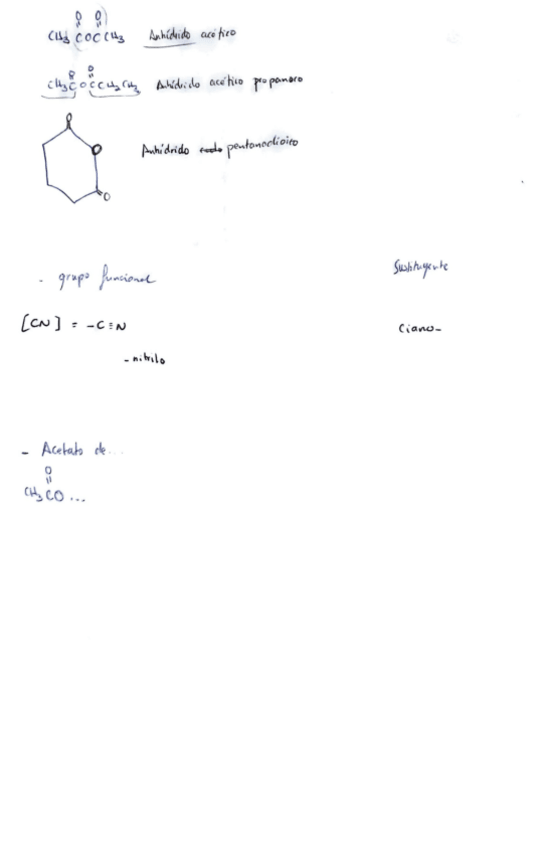 O O
CH3 C O C CH3 Anhídrido acético
O O
CH3 C O C CH2 CH3 Anhídrido acético propanoro
O
O Anhídrido pentanodioico
O
- grupo funcional Sustituyente
[CN] = -C≡N Ciano-
-nitrilo
- Acetato de...
O
CH3 CO ...